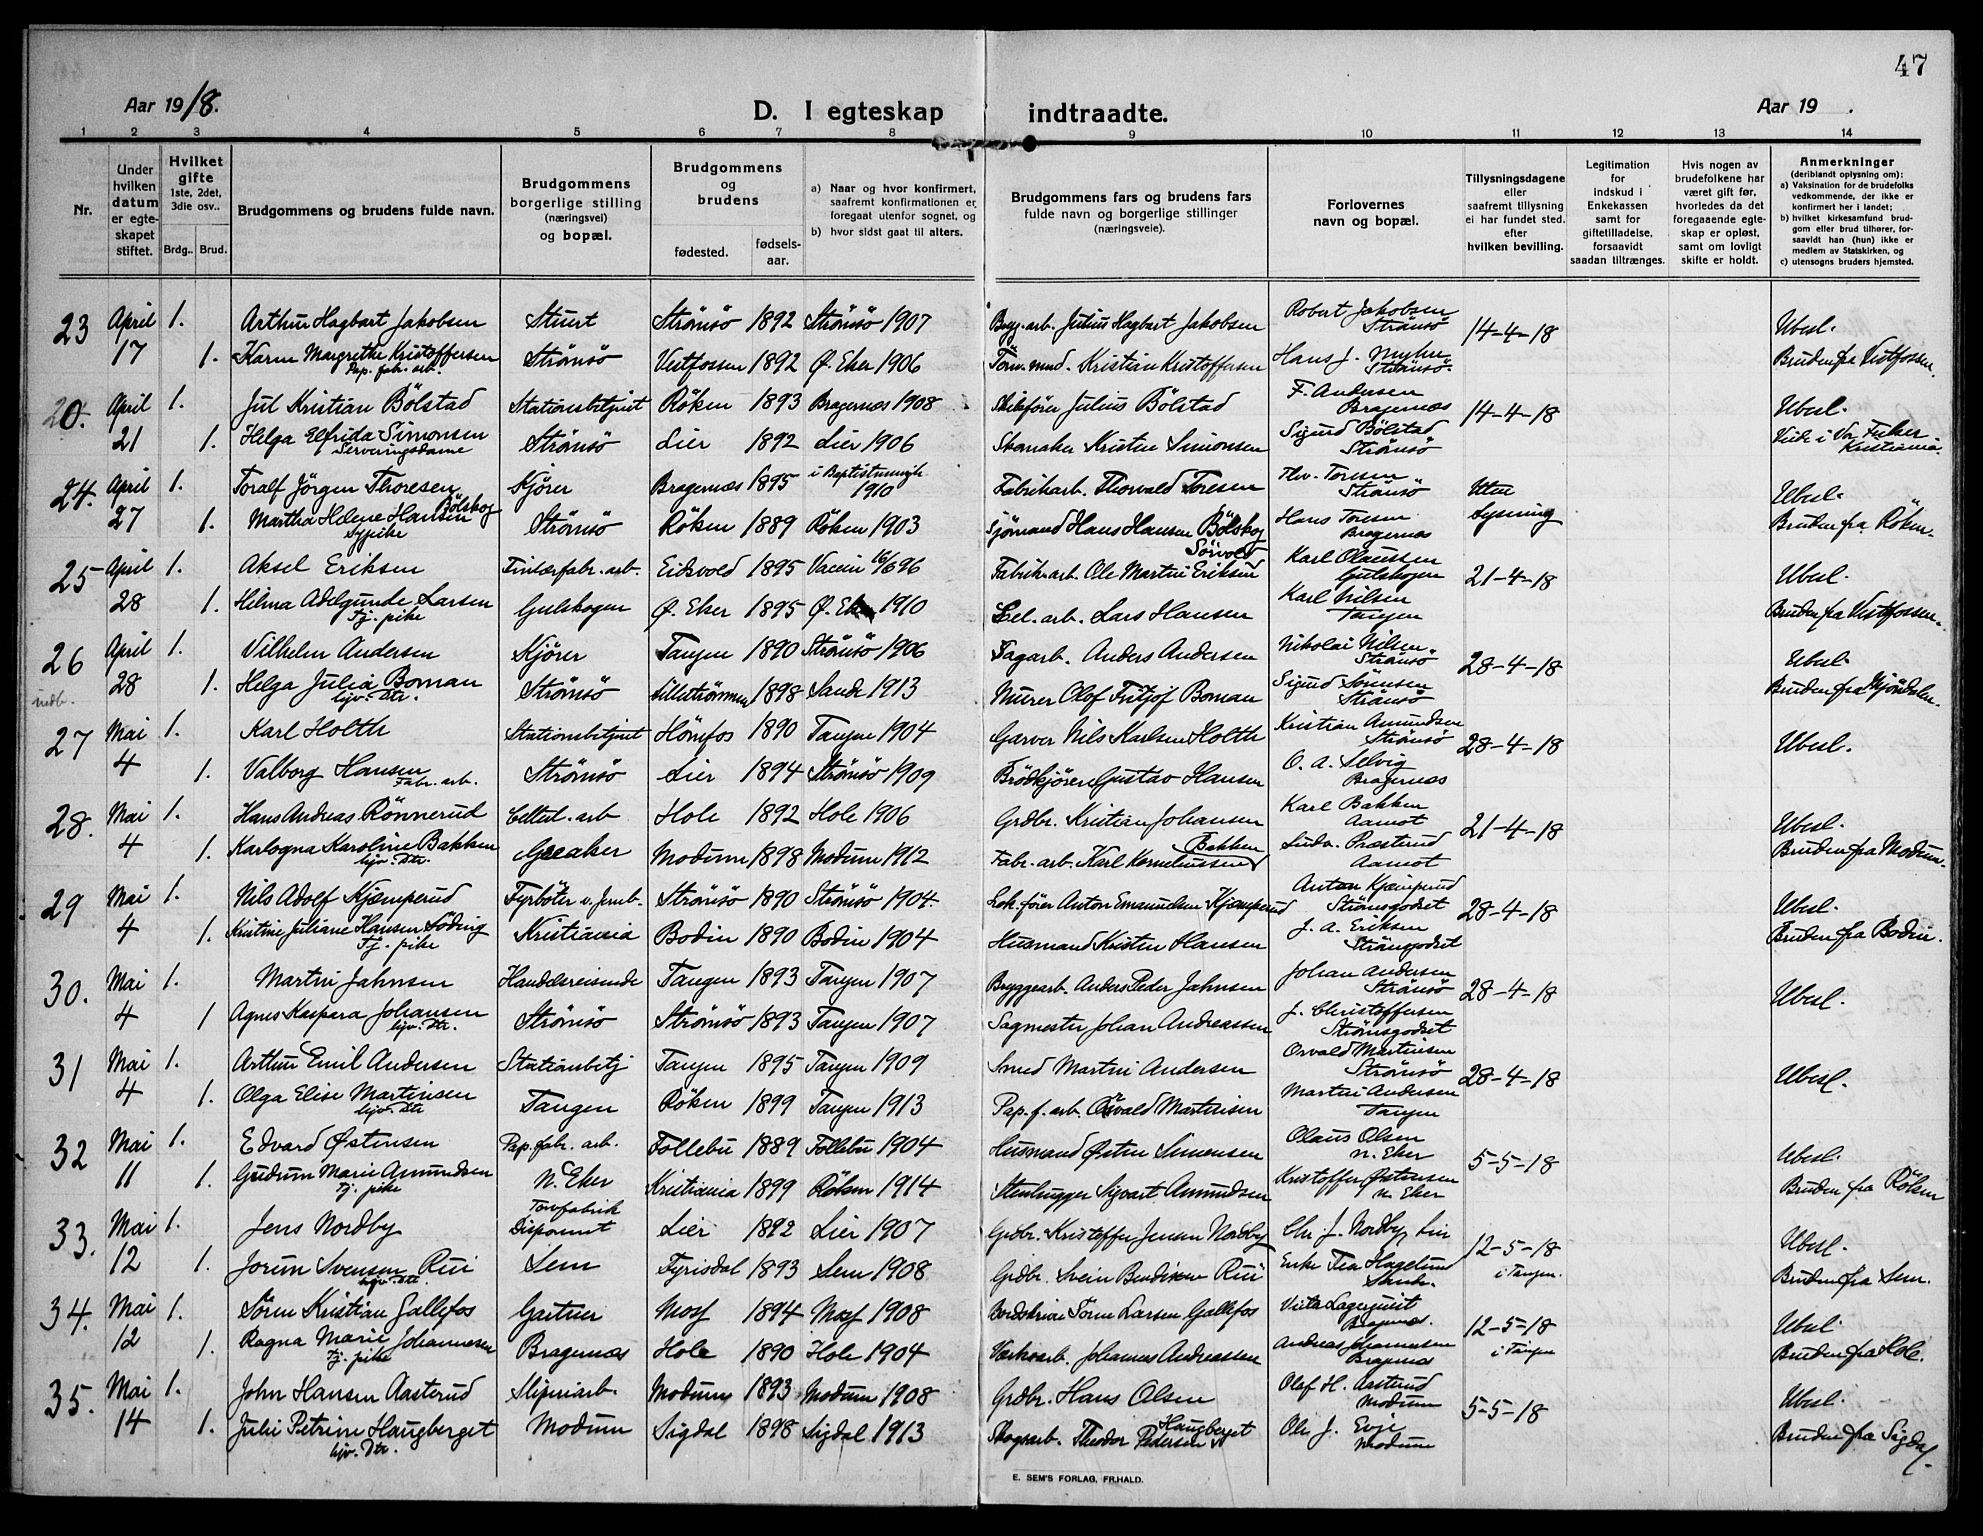 47
Aar 1918.
D. I egteskap indtraadte.
Aar 19 .
1 2 3 4 5 6 7 8 9 10 11 12 13 14
Nr.
Under hvilken datum er egteskapet stiftet.
Hvilket gifte 1ste, 2det, 3die osv..
Brdg.. Brud.
Brudgommens og brudens fulde navn.
Brudgommens borgerlige stilling (næringsvei) og bopæl.
Brudgommens og brudens
fødested. fødsels-aar.
a) Naar og hvor konfirmert, saafremt konfirmationen er foregaat utenfor sognet, og
b) hvor sidst gaat til alters.
Brudgommens fars og brudens fars fulde navn og borgerlige stillinger (næringsveie).
Forlovernes navn og bopæl.
Tillysningsdagene eller saafremt tillysning ei har fundet sted. efter hvilken bevilling.
Legitimation for indskud i Enkekassen samt for giftetilladelse, forsaavidt saadan tiltrænges.
Hvis nogen av brudefolkene har været gift før, hvorledes da det foregaaende egteskap er opløst, samt om lovligt skifte er holdt.
Anmerkninger (deriblandt oplysning om):
a) Vaksination for de brudefolks vedkommende, der ikke er konfirmert her i landet;
b) hvilket kirkesamfund brudgom eller brud tilhører, forsaavidt han (hun) ikke er medlem av Statskirken, og
c) utensogns bruders hjemsted.
23 April 1. Arthur Hagbart Jakobsen Stuert Strömsö 1892 Strömsö 1907 Brygg.arb. Julius Hagbart Jakobsen Robert Jakobsen Strömsö 14-4-18 Ubesl.
17 1. Karen Margrethe Kristoffersen Pap. fabr. arb. Strömsö Vestfossen 1892 Ø. Eker 1906 Kristian Kristoffersen Hans J. Myhre Strömsö. Bruden fra Vestfossen.
20. April 1. Jul Kristian Bölstad Stationsbetjent Röken 1893 Bragernæs 1908 Julius Bölstad F. Andersen Bragernæs 14-4-18 Ubesl.
21 1. Helga Elfrida Simonsen Serveringsdame Strömsö Lier 1892 Lier 1906 Skomaker Kristen Simonsen Sigurd Bölstad Strömsö Viede i Vor Frelser Kristiania.
24. April 1. Toralf Jörgen Thoresen Kjörer Bragernæs 1895 i Baptistmenigh. 1910 Fabrikarb. Thorvald Toresen Thv. Toresen Strömsö Uten Ubesl.
27 1. Martha Helene Hansen Bölskog Sypike Strömsö Röken 1889 Röken 1903 Sjömand Hans Hansen Bölskog Hans Toresen Bragernæs Lysning Bruden fra Röken.
25 April 1. Aksel Eriksen Tinlærfabr. arb. Eidsvold 1895 Vaccin 16/6 96 Fabrikarb. Ole Martin Eriksen Sörvold Karl Olaussen Gulskogen 21-4-18 Ubesl.
28 1. Helma Adelgunde Larsen Tj. pike Gulskogen Ø. Eker 1895 Ø. Eker 1910 Cel. arb. Lars Hansen Karl Nilsen Tangen Bruden fra Vestfossen.
26 April 1. Vilhelm Andersen Kjörer Tangen 1890 Strömsö 1906 Sagarb. Anders Andersen Nikolai Nilsen Strömsö 28-4-18 Ubesl.
indb. 28 1. Helga Julia Boman hjv. Dtr. Strömsö Lilleströmmen 1898 Sande 1913 Murer Olof Fritjof Boman Sigurd Sörensen Strömsö Bruden fra Mjöndalen.
27 Mai 1. Karl Holth Stationsbetjent Hönefos 1890 Tangen 1904 Garver Nils Karlsen Holth Kristian Amundsen Strömsö 28-4-18 Ubesl.
4 1. Valborg Hansen Fabr. arb. Strömsö Lier 1894 Strömsö 1909 Brödkjörer Gustav Hansen O. A. Selvig Bragernæs
28. Mai 1. Hans Andreas Rönnerud Cellul. arb Hole 1892 Hole 1906 Grdbr. Kristian Johansen Karl Bakken Aamot 21-4-18 Ubesl.
4 1. Karlogna Karoline Bakken hjv. Dtr. Geeaker Modum 1898 Modum 1912 Fabr. arb. Karl Korneliussen Bakken Ludv. Præstrud Aamot Bruden fra Modum.
29 Mai 1. Nils Adolf Kjæmperud Fyrböter v. Jernb. Strömsö 1890 Strömsö 1904 Lok. förer Anton Emanuelsen Kjæmperud Anton Kjæmperud Strömsgodset 28-4-18 Ubesl.
4 1. Kristine Juliane Hansen Söding Tj. pike Kristiania Bodin 1890 Bodin 1904 Husmand Kristen Hansen J. A. Eriksen Strömsgodset Bruden fra Bodin.
30. Mai 1. Martin Jahnsen Handelsreisende Tangen 1893 Tangen 1907 Bryggearb. Anders Peder Jahnsen Johan Andersen Strömsö 28-4-18 Ubesl.
4 1 Agnes Kaspara Johansen hjv. Dtr. Strömsö Strömsö 1893 Tangen 1907 Sagmester Johan Andreassen J. Christoffersen Strömsgodset
31 Mai 1. Arthur Emil Andersen Stationsbetj Tangen 1895 Tangen 1909 Smed Martin Andersen Osvald Martinsen Strömsö 28-4-18 Ubesl.
4 1. Olga Elise Martinsen hjv. Dtr Tangen Röken 1899 Tangen 1913 Pap. f. arb. Osvald Martinsen Martin Andersen Tangen
32 Mai 1. Edvard Østensen Pap. fabr. arb. Follebu 1889 Follebu 1904 Husmand Østen Simensen Olaus Olsen N. Eker 5-5-18 Ubesl.
11 1. Gudrun Marie Amundsen Tj. pike N. Eker Kristiania 1899 Röken 1914 Stenhugger Sigvart Amundsen Kristoffer Østensen N. Eker Bruden fra Röken
33. Mai 1. Jens Nordby Tönfabrik Disponent Lier 1892 Lier 1907 Grdbr. Kristoffer Jensen Nordby Chr. J. Nordby, Lier 12-5-18 Ubesl.
12 1. Jorun Svensen Rui hjv. Dtr. Sem Fyrisdal 1893 Sem 1908 Grdbr. Svein Bendiksen Rui Enke Tea Hagelund i Tangen. Bruden fra Sem.
34. Mai 1. Sören Kristian Gallefos Gartner Moss 1894 Moss 1908 Sören Larsen Gallefos Lagerquist Bragernæs. 12-5-18 Ubesl.
12 1. Ragna Marie Johannesen Tj. pike Bragernæs Hole 1890 Hole 1904 Værksarb. Johannes Andreassen Andreas Johannesen Bragernæs i Tangen Bruden fra Hole.
35. Mai 1. John Hansen Aasterud Sliperiarb. Modum 1893 Modum 1908 Grdbr. Hans Olsen Olaf H. Aasterud Modum 5-5-18 Ubesl.
14 1. Julie Petrine Haugberget hjv. Dtr. Modum Sigdal 1898 Sigdal 1913 Skogsarb. Theodor Pedersen Haugberget Ole J. Evje Modum Bruden fra Sigdal.
E. SEM'S FORLAG, FR.HALD.